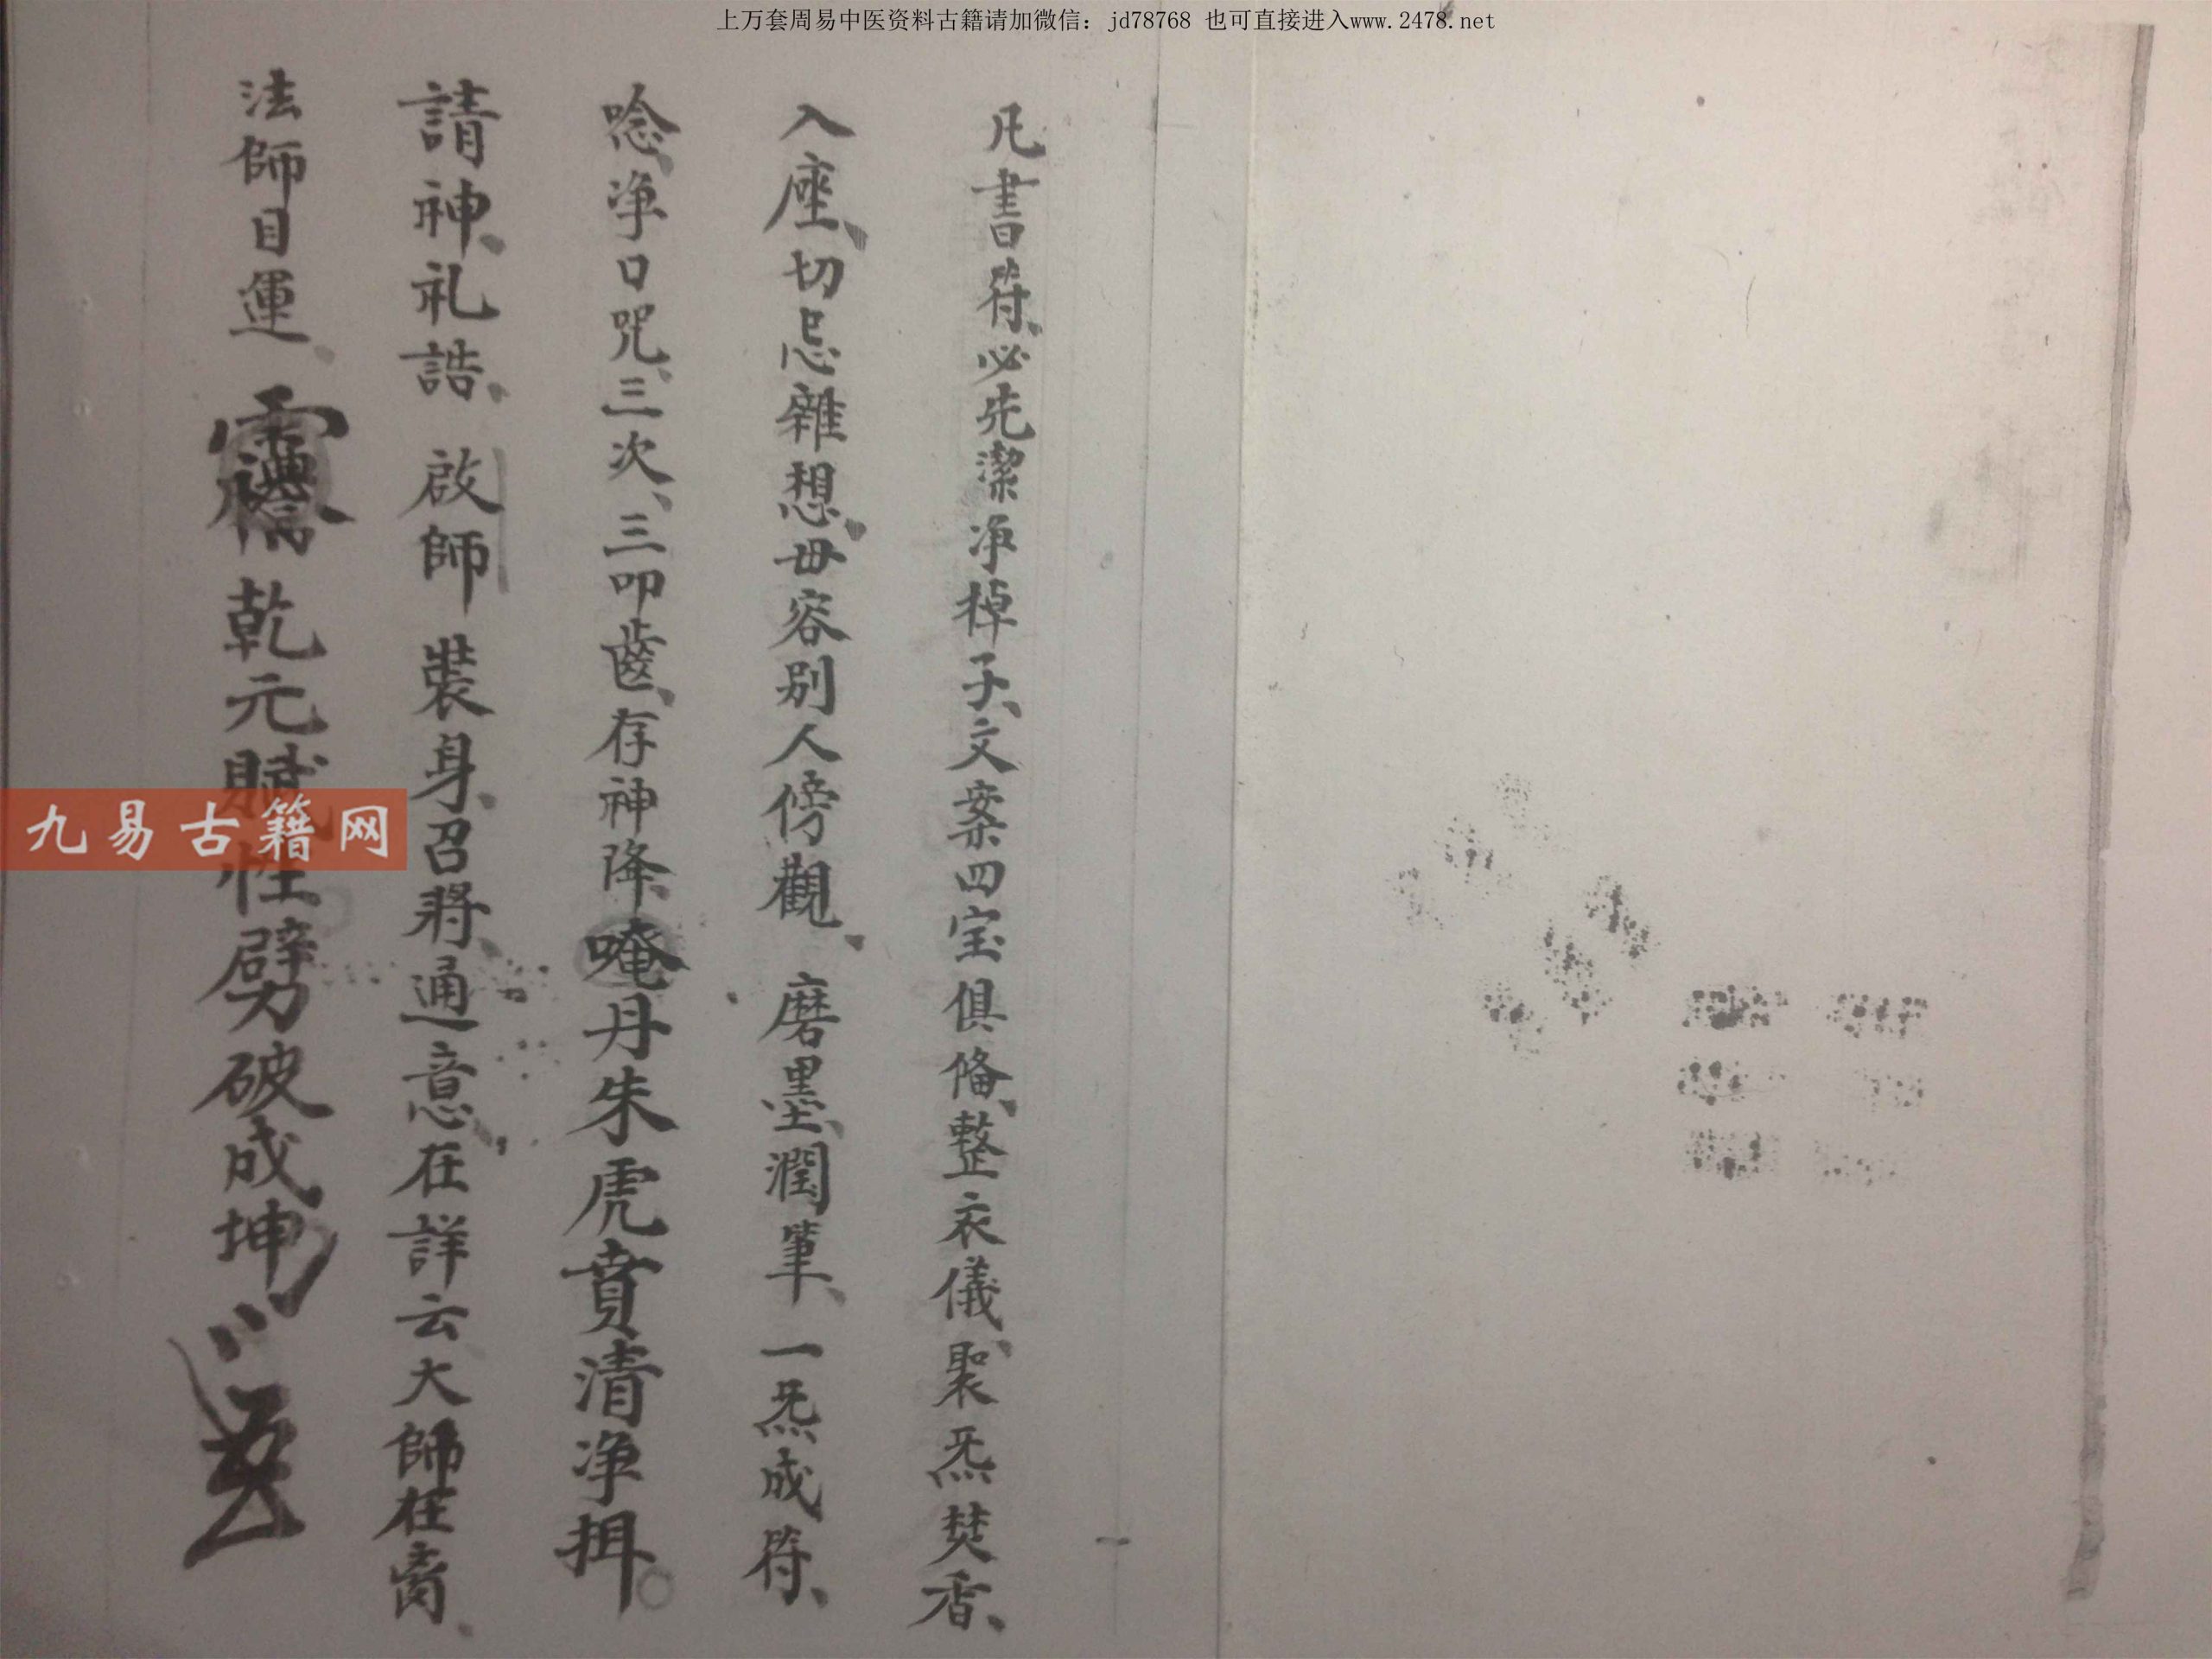 上万套周易中医资料古籍请加微信：jd78768 也可直接进入www.2478.net
凡書符、必先潔净棹子、文案四宝俱俻、整衣儀、聚炁焚香、
入座、切忌雜想、毋容别人傍觀、磨墨、潤筆、一炁成符、
唸净口咒、三次、三叩齒、存神降、唵丹朱虎賁清净揖。
請神、礼誥、啟師裝身、召將、通意、在詳云大師在
法師目運、乾元賦性劈破成坤
九易古籍网